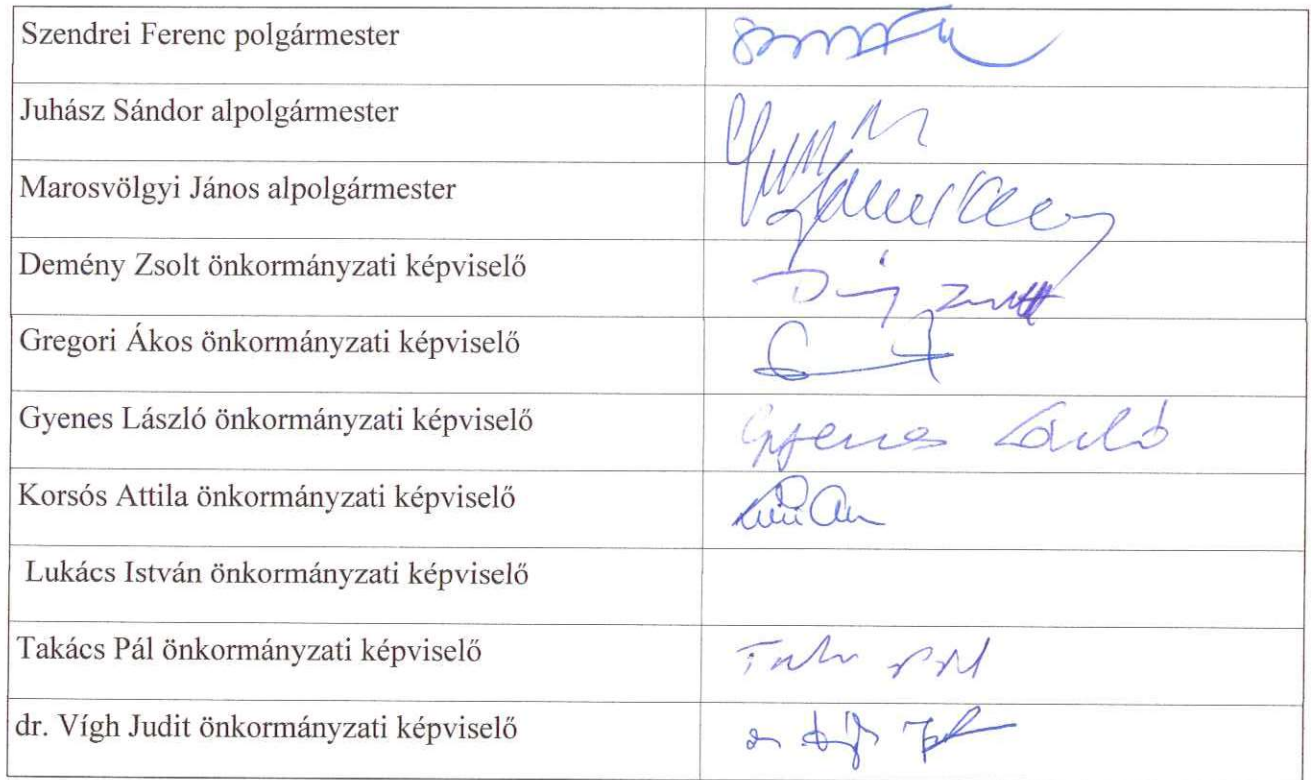 Szendrei Ferenc polgármester
Juhász Sándor alpolgármester
Marosvölgyi János alpolgármester
Demény Zsolt önkormányzati képviselő
Gregori Ákos önkormányzati képviselő
Gyenes László önkormányzati képviselő
Gyenes László
Korsós Attila önkormányzati képviselő
Lukács István önkormányzati képviselő
Takács Pál önkormányzati képviselő
dr. Vígh Judit önkormányzati képviselő